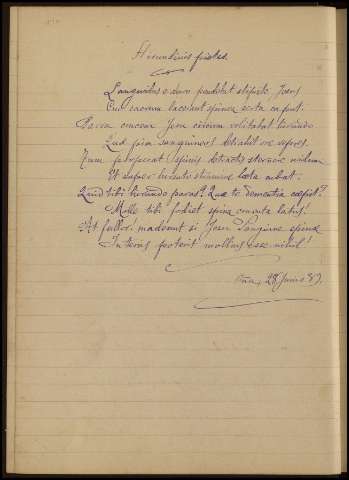 Hirundinis pietas.
Languidus e duro pendebat stipite, Jesus
Cui sacrum lacerant spinea serta caput.
Parva crucem Jesu circum volitabat hirundo
Quae pia sanguineos detrahit ore vepres.
Nam properat spinis detractis sternere nidum
Et super hirsuto stamine laeta cubat.
Quid tibi hirundo paras? Quae te dementia cepit?
Molle tibi fodiet spina cruenta latus!
At fallor! maderunt si Jesu sanguine spinae
In terris poterit mollius esse nihil!
28 Junio 87.